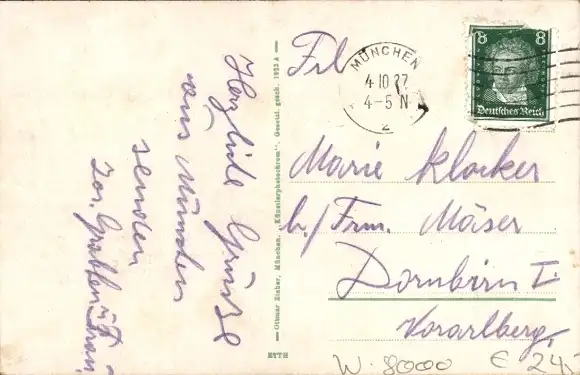 Herzliche Grüsse
aus München
senden
Jos. u. Frau
Ottmar Zieher, München. „Künstlerphotochrom". Gesetzl. gesch. 1923 A
ETTH
MÜNCHEN
4 10 27
4-5 N
2
8 8
Deutsches Reich
Frl
Marie Klocker
b/ Frm. Mäser
Dornbirn I.
Vorarlberg.
W. 8000 € 24,-